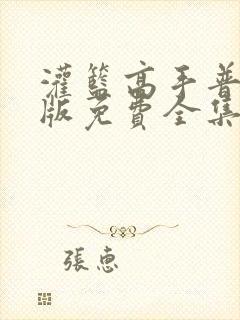 灌籃高手普
版免費全集
張惠